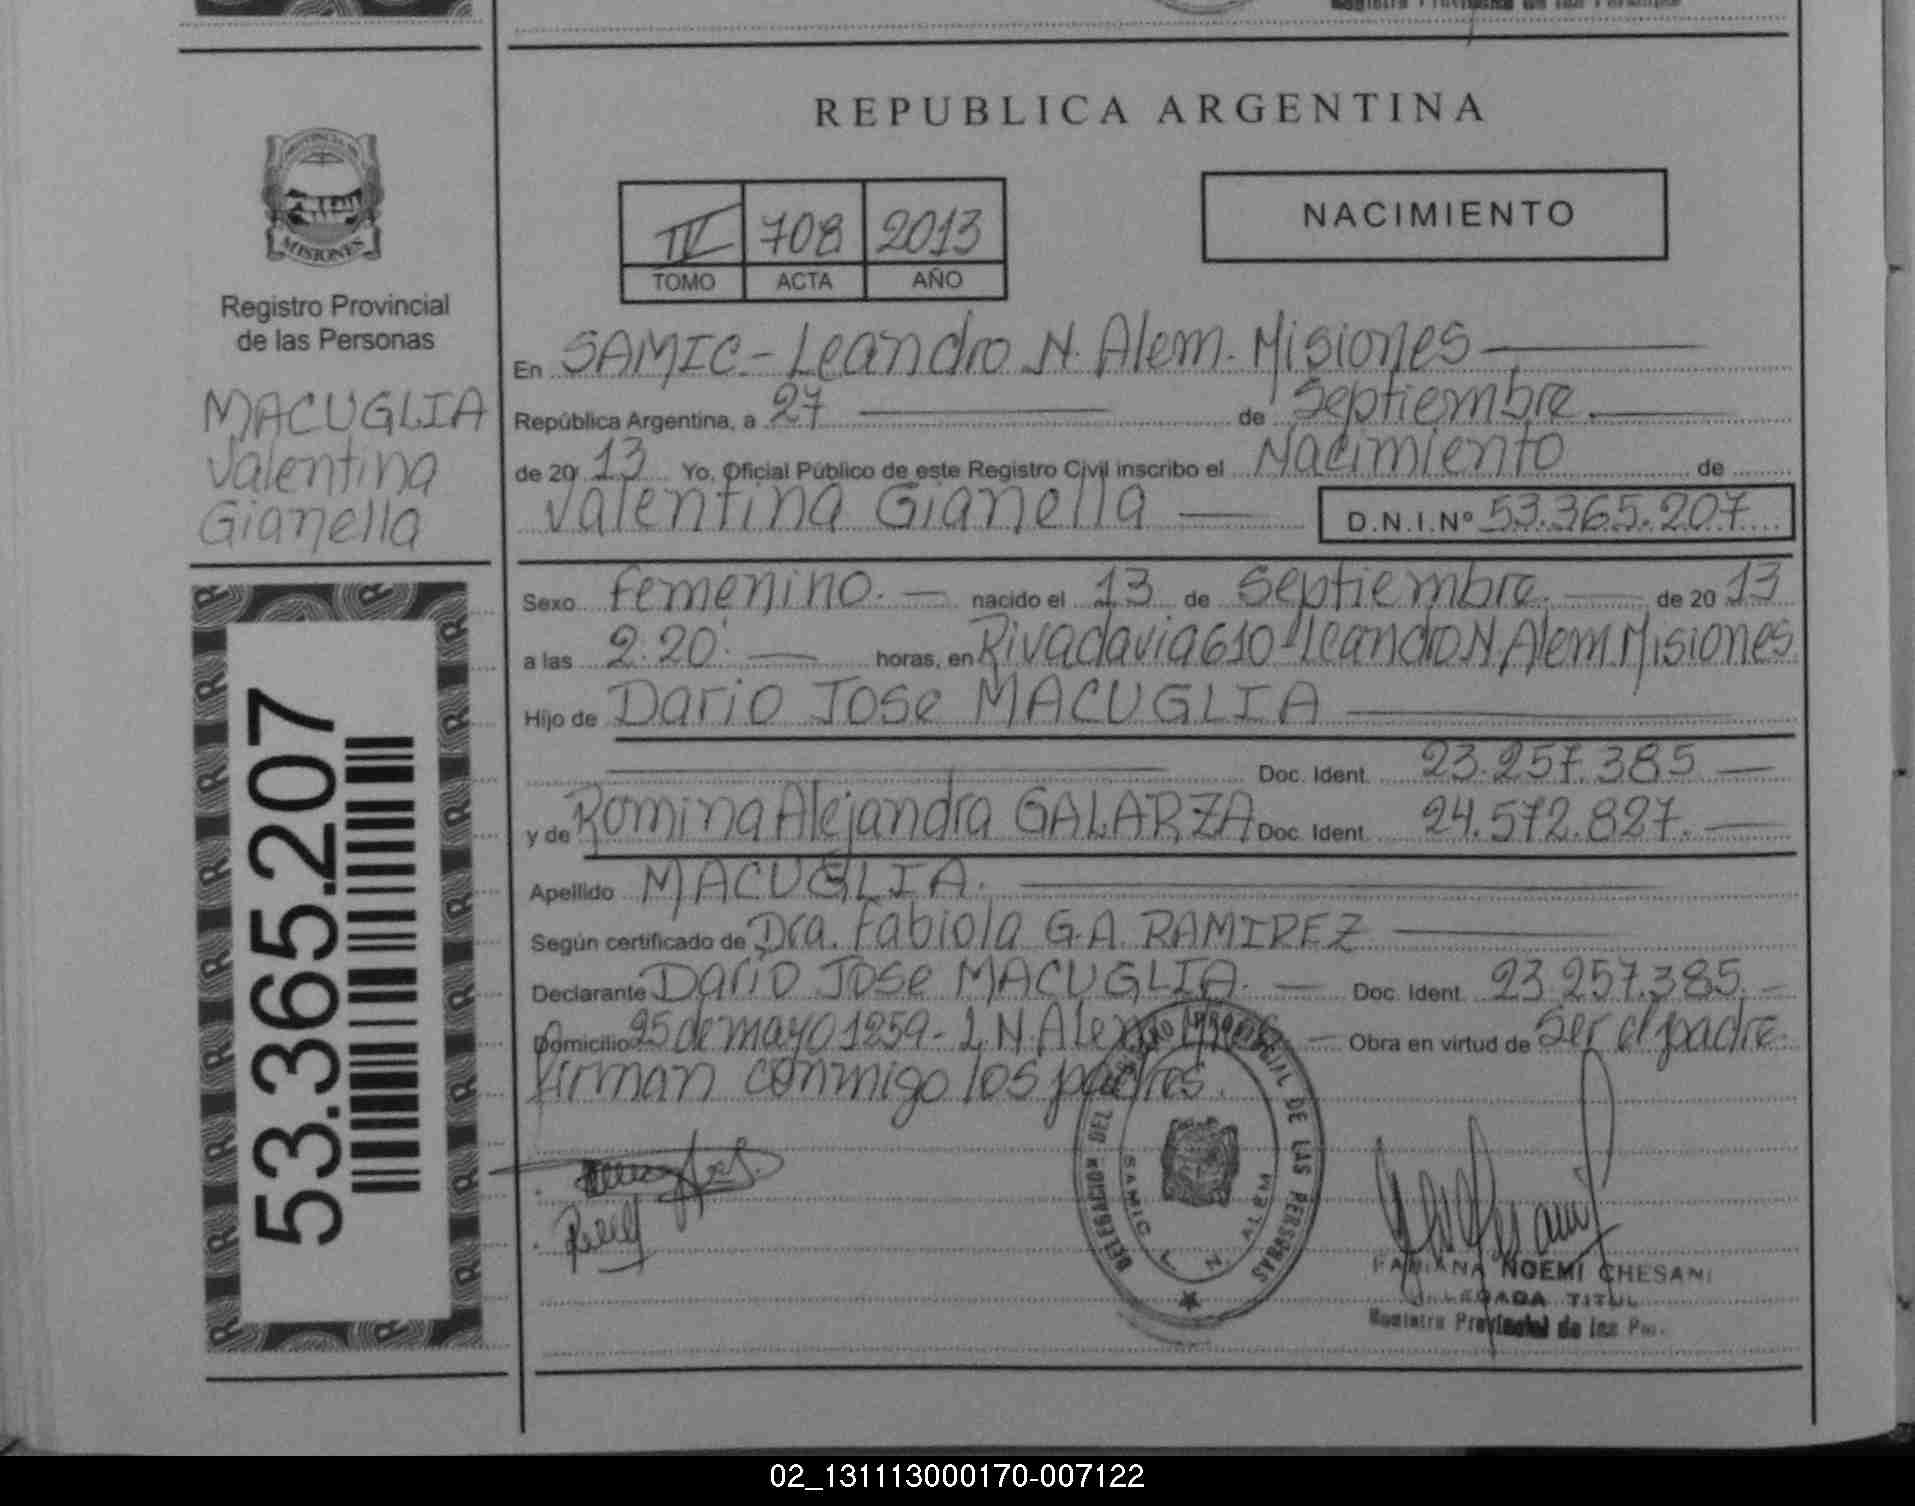 REPUBLICA ARGENTINA
PROVINCIA DE
MISIONES
Registro Provincial
de las Personas
MACUGLIA
Valentina
Gianella
53.365.207
IV 708 2013
TOMO ACTA AÑO
NACIMIENTO
En SAMIC - Leandro N. Alem. Misiones
República Argentina, a 27 de Septiembre
de 2013 Yo, Oficial Público de este Registro Civil inscribo el Nacimiento de
Valentina Gianella D.N.I.Nº 53.365.207
Sexo femenino. nacido el 13 de Septiembre. de 2013
a las 2.20' horas, en Rivadavia 610 - Leandro N. Alem. Misiones.
Hijo de Dario Jose MACUGLIA
Doc. Ident. 23.257.385
y de Romina Alejandra GALARZA Doc. Ident. 24.572.827.
Apellido MACUGLIA.
Según certificado de Dra. Fabiola G.A. RAMIREZ
Declarante Dario Jose MACUGLIA. Doc. Ident. 23.257.385.
Domicilio 25 de mayo 1259 - L. N. Alem Obra en virtud de Ser el padre.
firman conmigo los padres.
DELEGACION DEL REGISTRO PROVINCIAL DE LAS PERSONAS
SAMIC L. N. ALEM
FABIANA NOEMI CHESANI
Registro Provincial de las
02_131113000170-007122